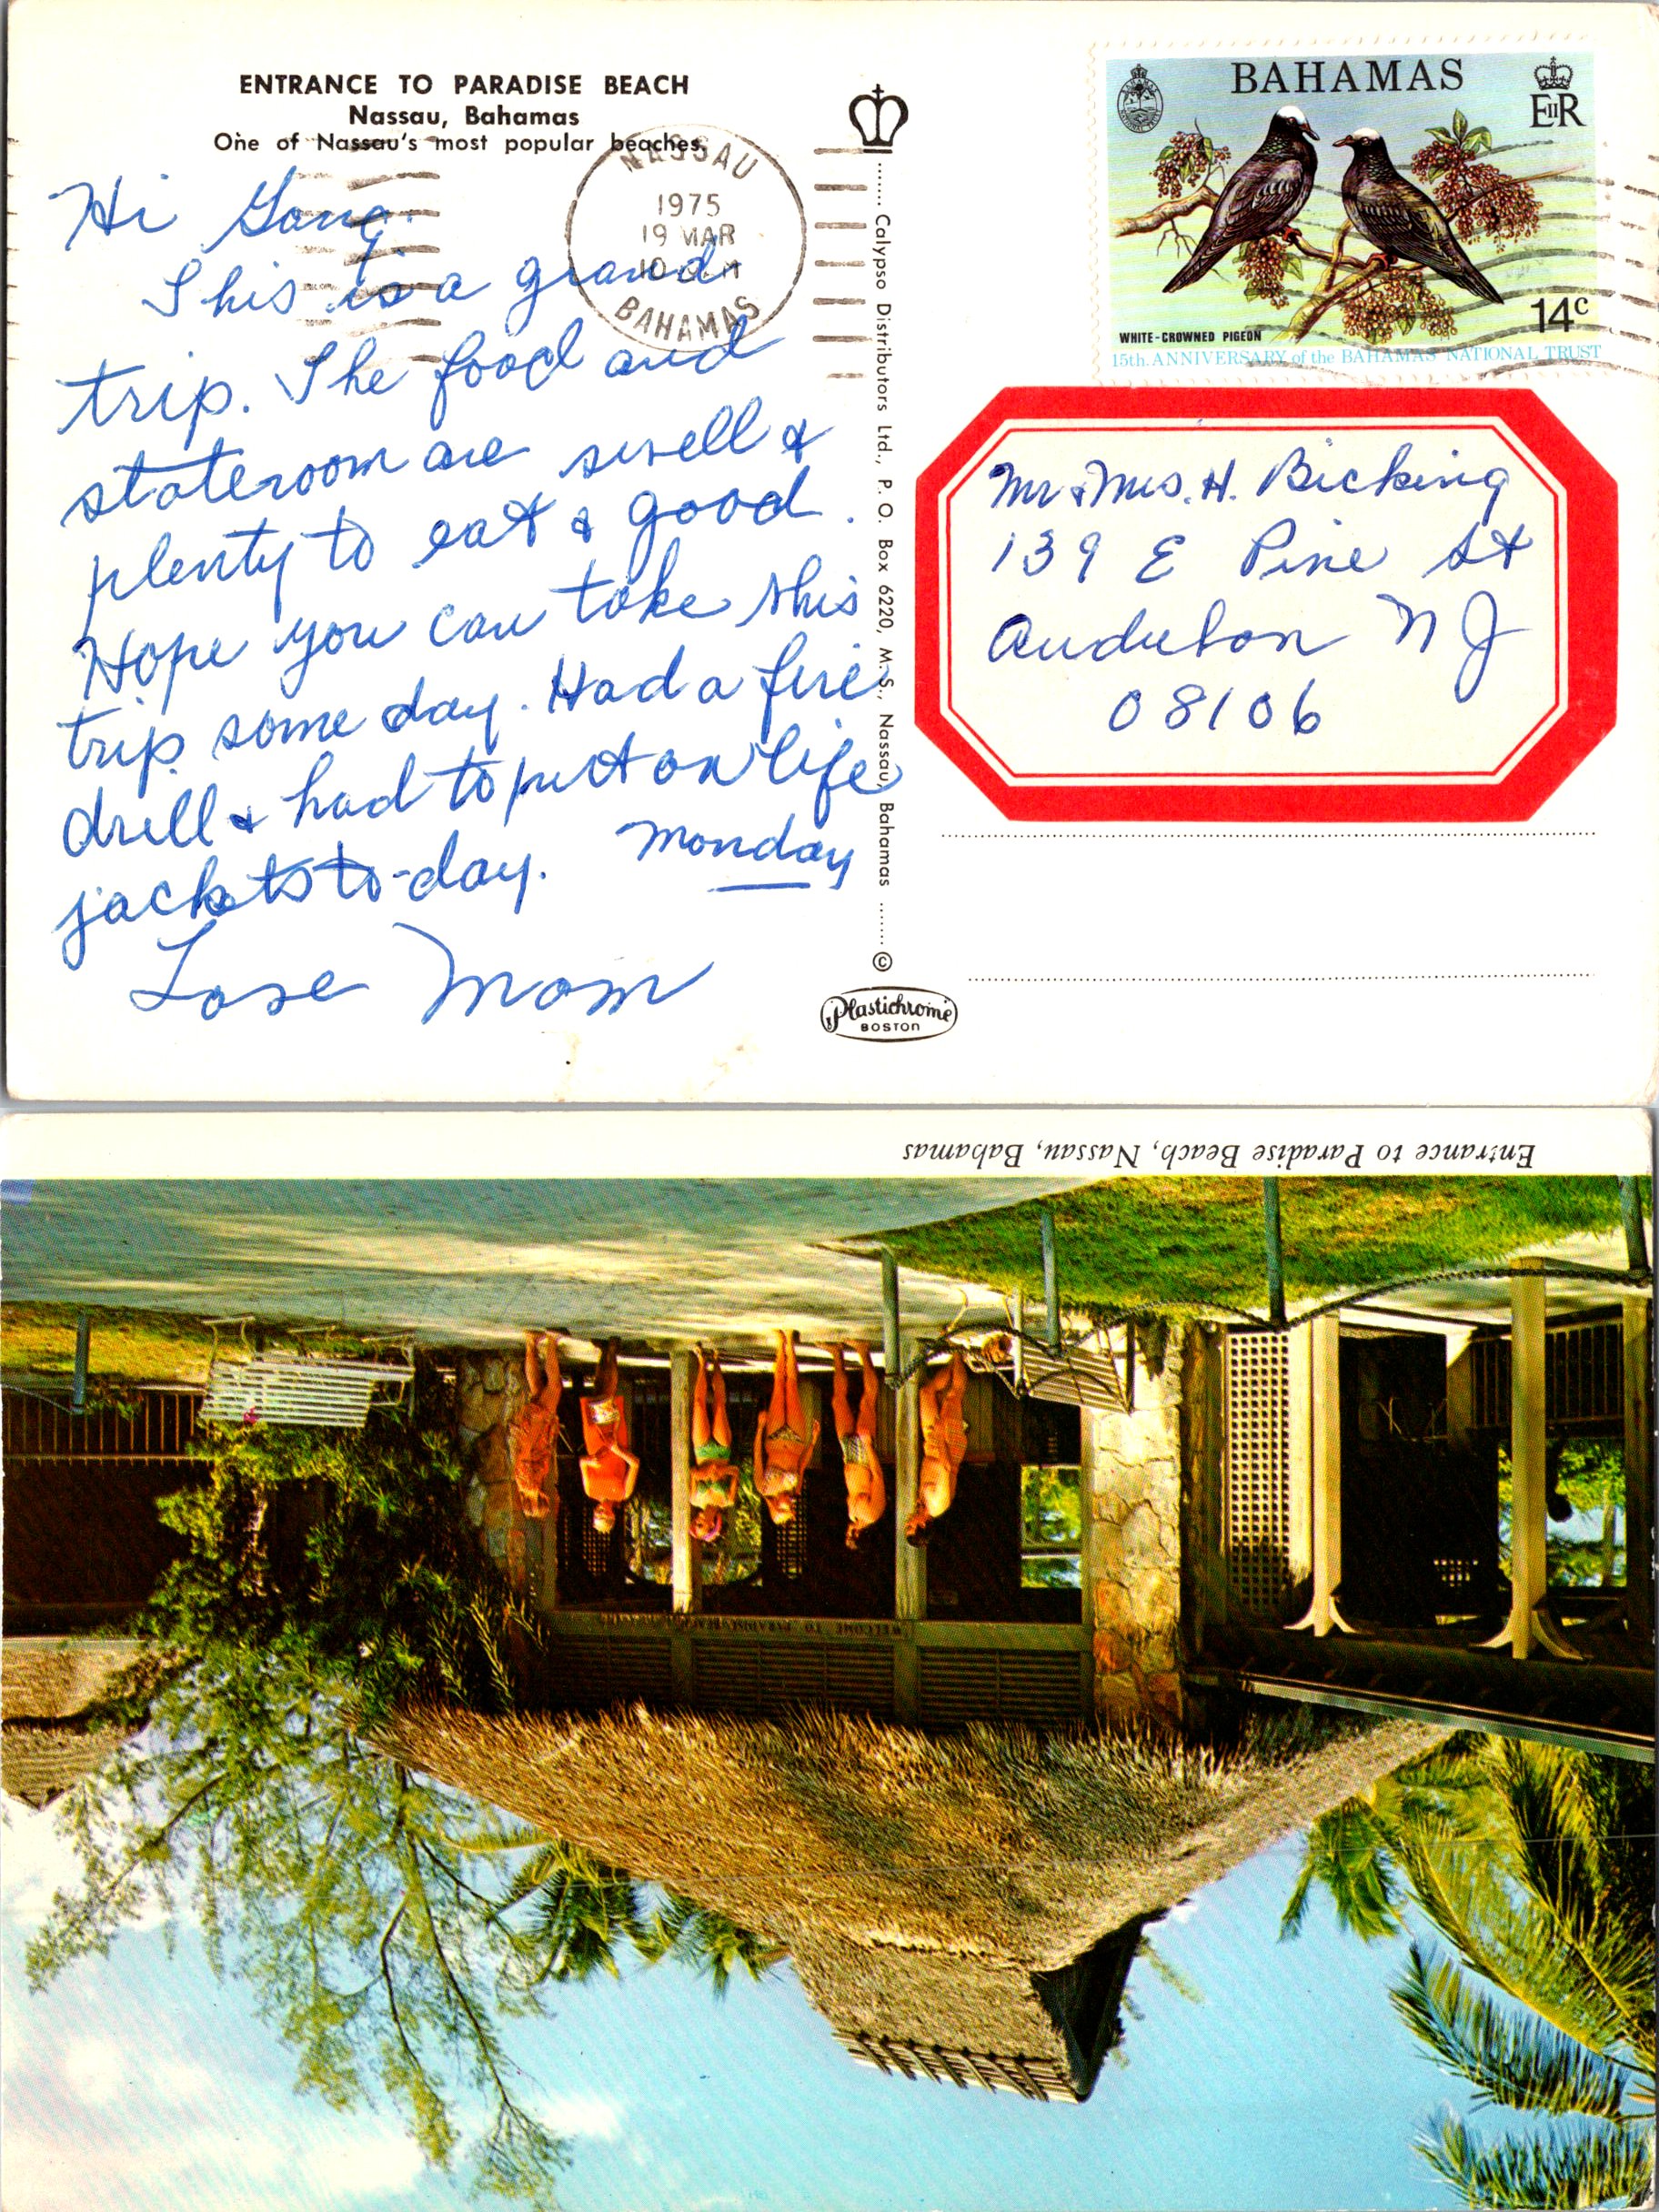 ENTRANCE TO PARADISE BEACH
Nassau, Bahamas
One of Nassau's most popular beaches.
Hi Gang.
This is a grand
trip. The food and
stateroom are swell &
plenty to eat & good.
Hope you can take this
trip some day. Had a fire
drill & had to put on life
jackets to-day. Monday
Love Mom
NASSAU
1975
19 MAR
BAHAMAS
Calypso Distributors Ltd., P. O. Box 6220, M.S., Nassau, Bahamas ©
Plastichrome
BOSTON
BAHAMAS
EIIR
14c
WHITE-CROWNED PIGEON
15th. ANNIVERSARY of the BAHAMAS NATIONAL TRUST
Mr & Mrs. H. Bicking
139 E Pine St
Audubon NJ
08106
Entrance to Paradise Beach, Nassau, Bahamas
WELCOME TO PARADISE BEACH